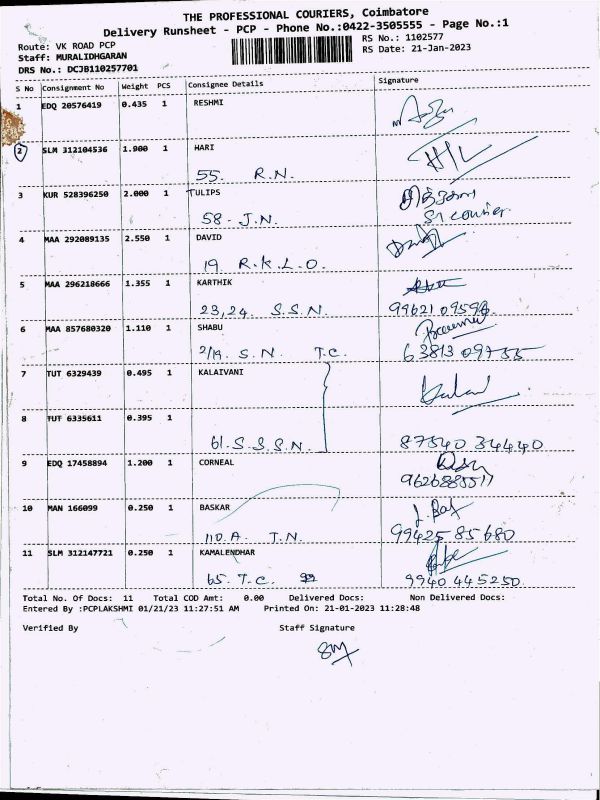 THE PROFESSIONAL COURIERS, Coimbatore
Delivery Runsheet - PCP - Phone No.:0422-3505555 - Page No.:1
Route: VK ROAD PCP
RS No.: 1102577
Staff: MURALIDHGARAN
RS Date: 21-Jan-2023
DRS No.: DCJB110257701
S No Consignment No Weight PCS Consignee Details Signature
1 EDQ 20576419 0.435 1 RESHMI
2 SLM 312104536 1.900 1 HARI
55. R.N.
3 KUR 528396250 2.000 1 TULIPS
58- J.N. ST courier
4 MAA 292089135 2.550 1 DAVID
19. R.K.L.O.
5 MAA 296218666 1.355 1 KARTHIK
23,24. S.S.N.
6 MAA 857680320 1.110 1 SHABU
2/19. S.N. T.C.
7 TUT 6329439 0.495 1 KALAIVANI
8 TUT 6335611 0.395 1
61. S.S.S.N. 87540 34440
9 EDQ 17458894 1.200 1 CORNEAL
10 MAN 166099 0.250 1 BASKAR
110.A. T.N. 99425 85680
11 SLM 312147721 0.250 1 KAMALENDHAR
65. T.C. 9940 445250
Total No. Of Docs: 11 Total COD Amt: 0.00 Delivered Docs: Non Delivered Docs:
Entered By :PCPLAKSHMI 01/21/23 11:27:51 AM Printed On: 21-01-2023 11:28:48
Verified By Staff Signature